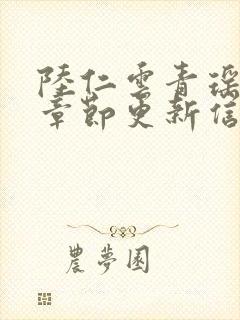 陸仁雲青瑶
章節更新信
農夢園